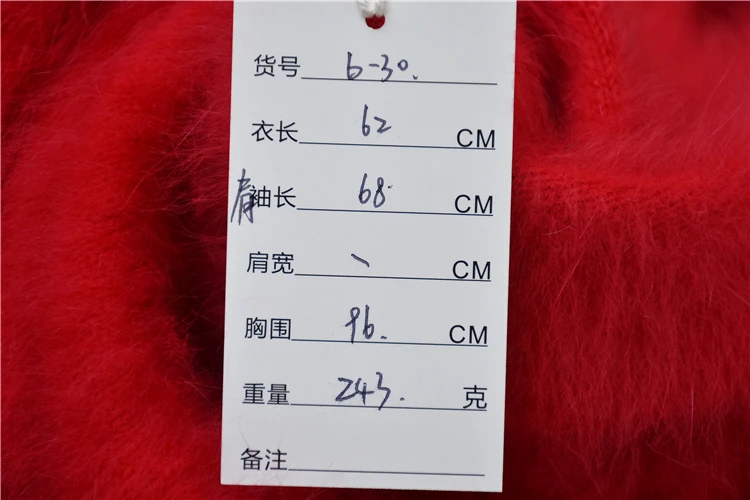 货号 6-30.
衣长 62 CM
肩袖长 68 CM
肩宽 、 CM
胸围 96. CM
重量 243. 克
备注